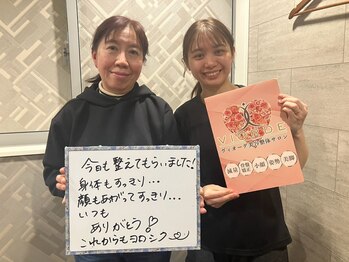 今日も整えてもらいました!
身体もすっきり...
顔もあがってすっきり...
いつも
ありがとう!
これからもヨロシク
VIGODE
ヴィオーデ 大宮整体サロン
減量 骨盤矯正 小顔 姿勢 美脚